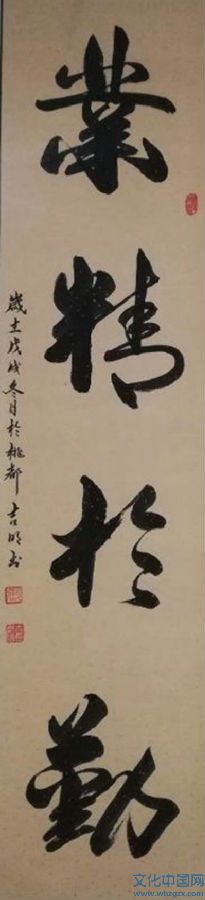 業精於勤
歲土戊戌冬月於桃都 吉明書
文化中国网
www.whzgzx.com